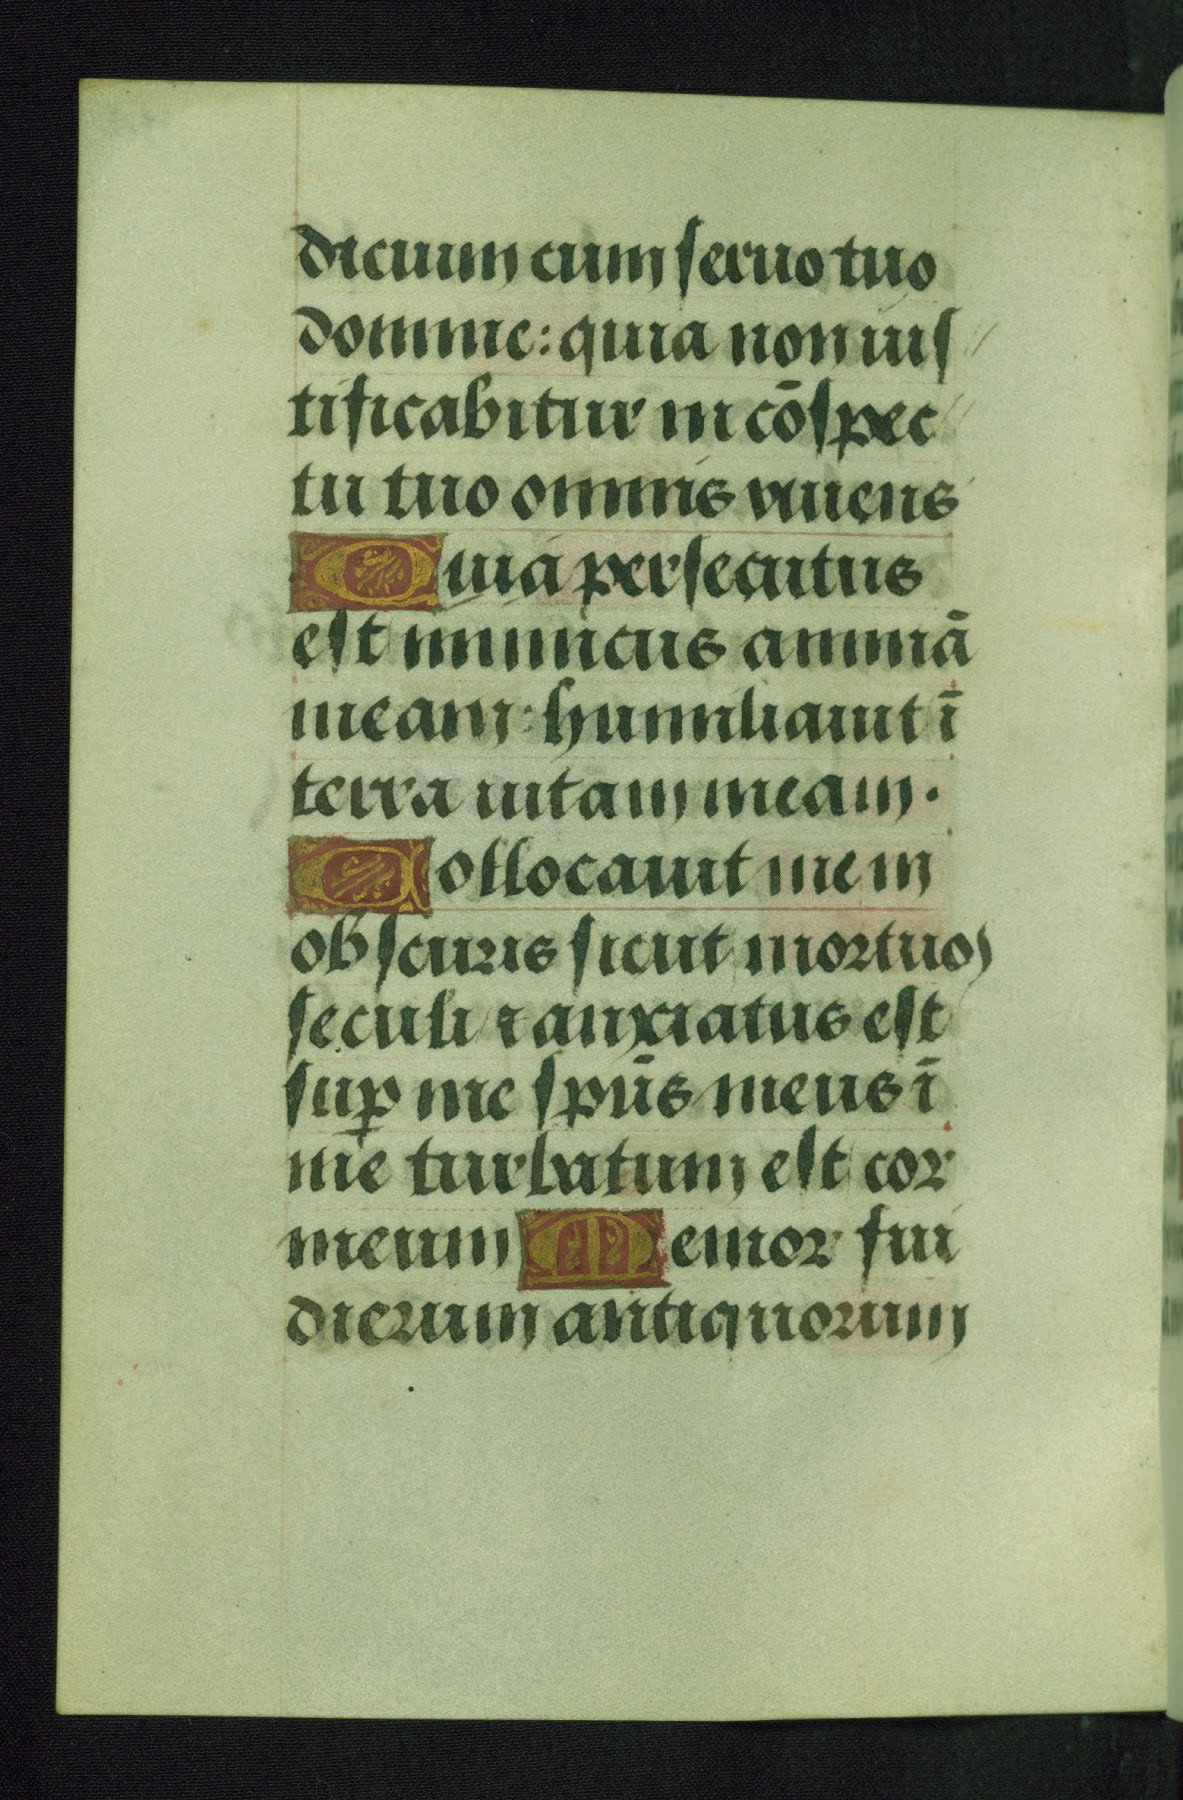 dicium cum seruo tuo
domine: quia non ius
tificabitur in cōspec
tu tuo omnis viuens
Quia persecutus
est inimicus animā
meam: humiliauit ī
terra uitam meam.
Collocauit me in
obscuris sicut mortuos
seculi ⁊ anxiatus est
suꝑ me spūs meus ī
me turbatum est cor
meum Memor fui
dierum antiquorum